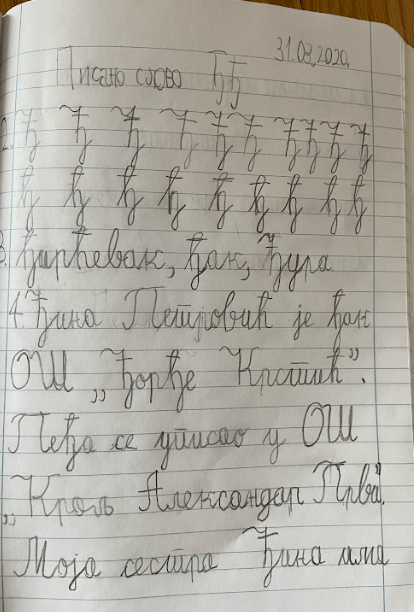 31.03.2020.
Писано слово Ђђ
2. Ђ Ђ Ђ Ђ Ђ Ђ Ђ Ђ Ђ Ђ
ђ ђ ђ ђ ђ ђ ђ ђ ђ
3. ђирћевак, ђак, Ђура
4. Ђина Петровић је ђак
ОШ „Ђорђе Крстић”.
Пеђа се уписао у ОШ
„Кроль Александар Први”.
Моја сестра Ђина има